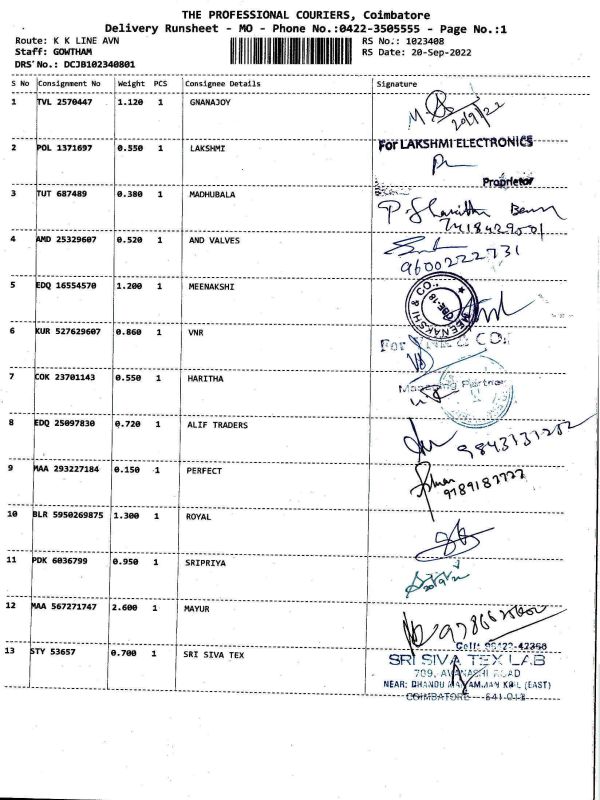 THE PROFESSIONAL COURIERS, Coimbatore
Delivery Runsheet - MO - Phone No.:0422-3505555 - Page No.:1
Route: K K LINE AVN RS No.: 1023408
Staff: GOWTHAM RS Date: 20-Sep-2022
DRS No.: DCJB102340801
S No Consignment No Weight PCS Consignee Details Signature
1 TVL 2570447 1.120 1 GNANAJOY
20/9/22
2 POL 1371697 0.550 1 LAKSHMI For LAKSHMI ELECTRONICS
Proprietor
3 TUT 687489 0.380 1 MADHUBALA
4 AMD 25329607 0.520 1 AND VALVES
9600222731
5 EDQ 16554570 1.200 1 MEENAKSHI MEENAKSHI & CO.,
6 KUR 527629607 0.860 1 VNR For VNR & CO.
7 COK 23701143 0.550 1 HARITHA Managing Partner
8 EDQ 25097830 0.720 1 ALIF TRADERS
9 MAA 293227184 0.150 1 PERFECT
10 BLR 5950269875 1.300 1 ROYAL
11 PDK 6036799 0.950 1 SRIPRIYA
12 MAA 567271747 2.600 1 MAYUR
13 STY 53657 0.700 1 SRI SIVA TEX
SRI SIVA TEX LAB
709, AVANASHI ROAD
(EAST)
COIMBATORE